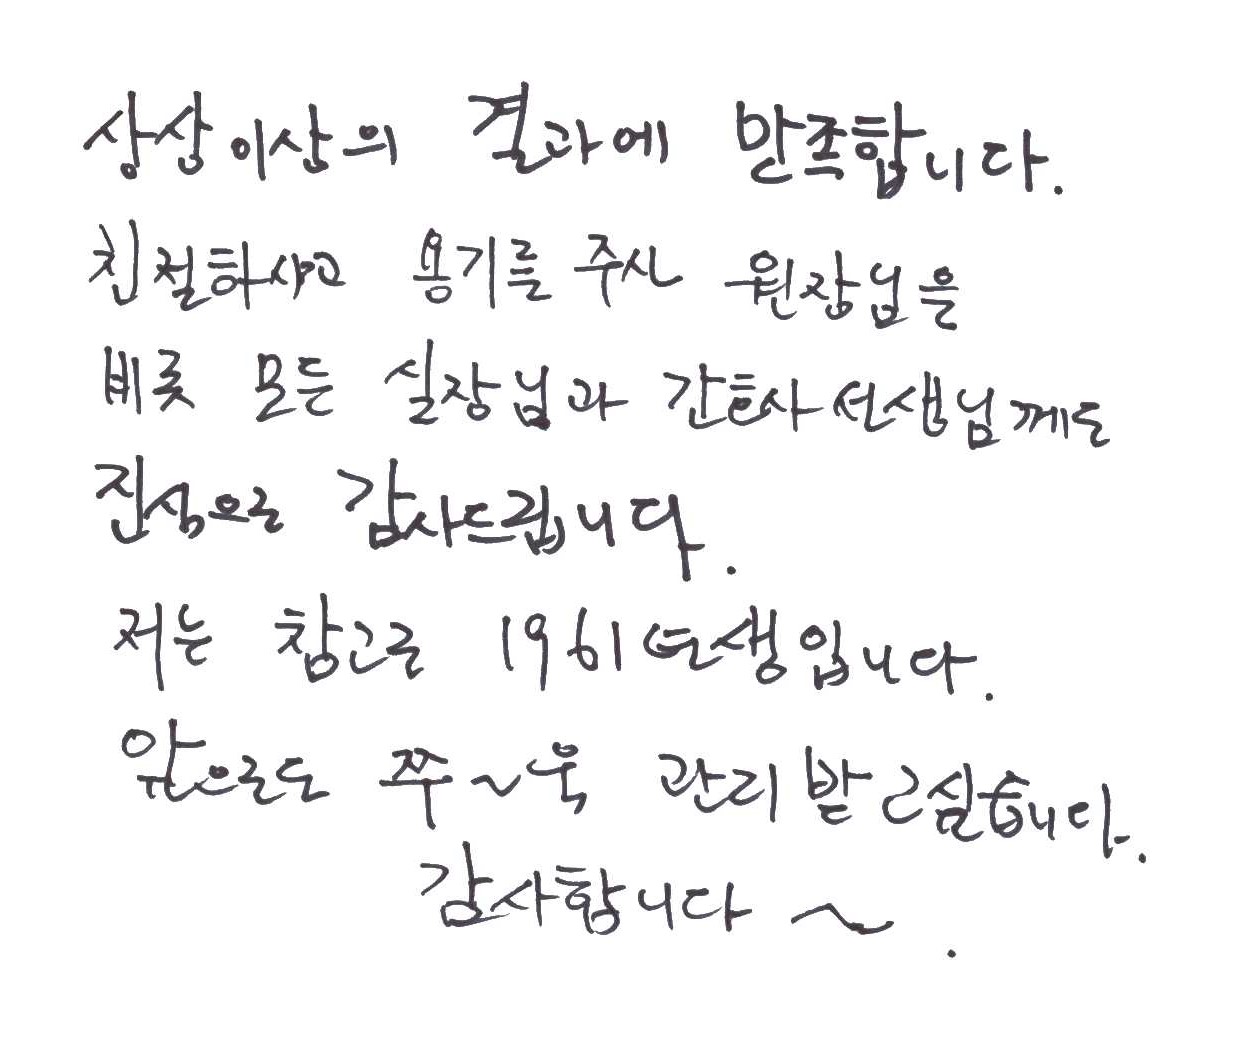 상상이상의 결과에 만족합니다.
친절하시고 용기를 주신 원장님을
비롯 모든 실장님과 간호사선생님께도
진심으로 감사드립니다.
저는 참고로 1961년생입니다.
앞으로도 쭈~욱 관리받고싶습니다.
감사합니다~.